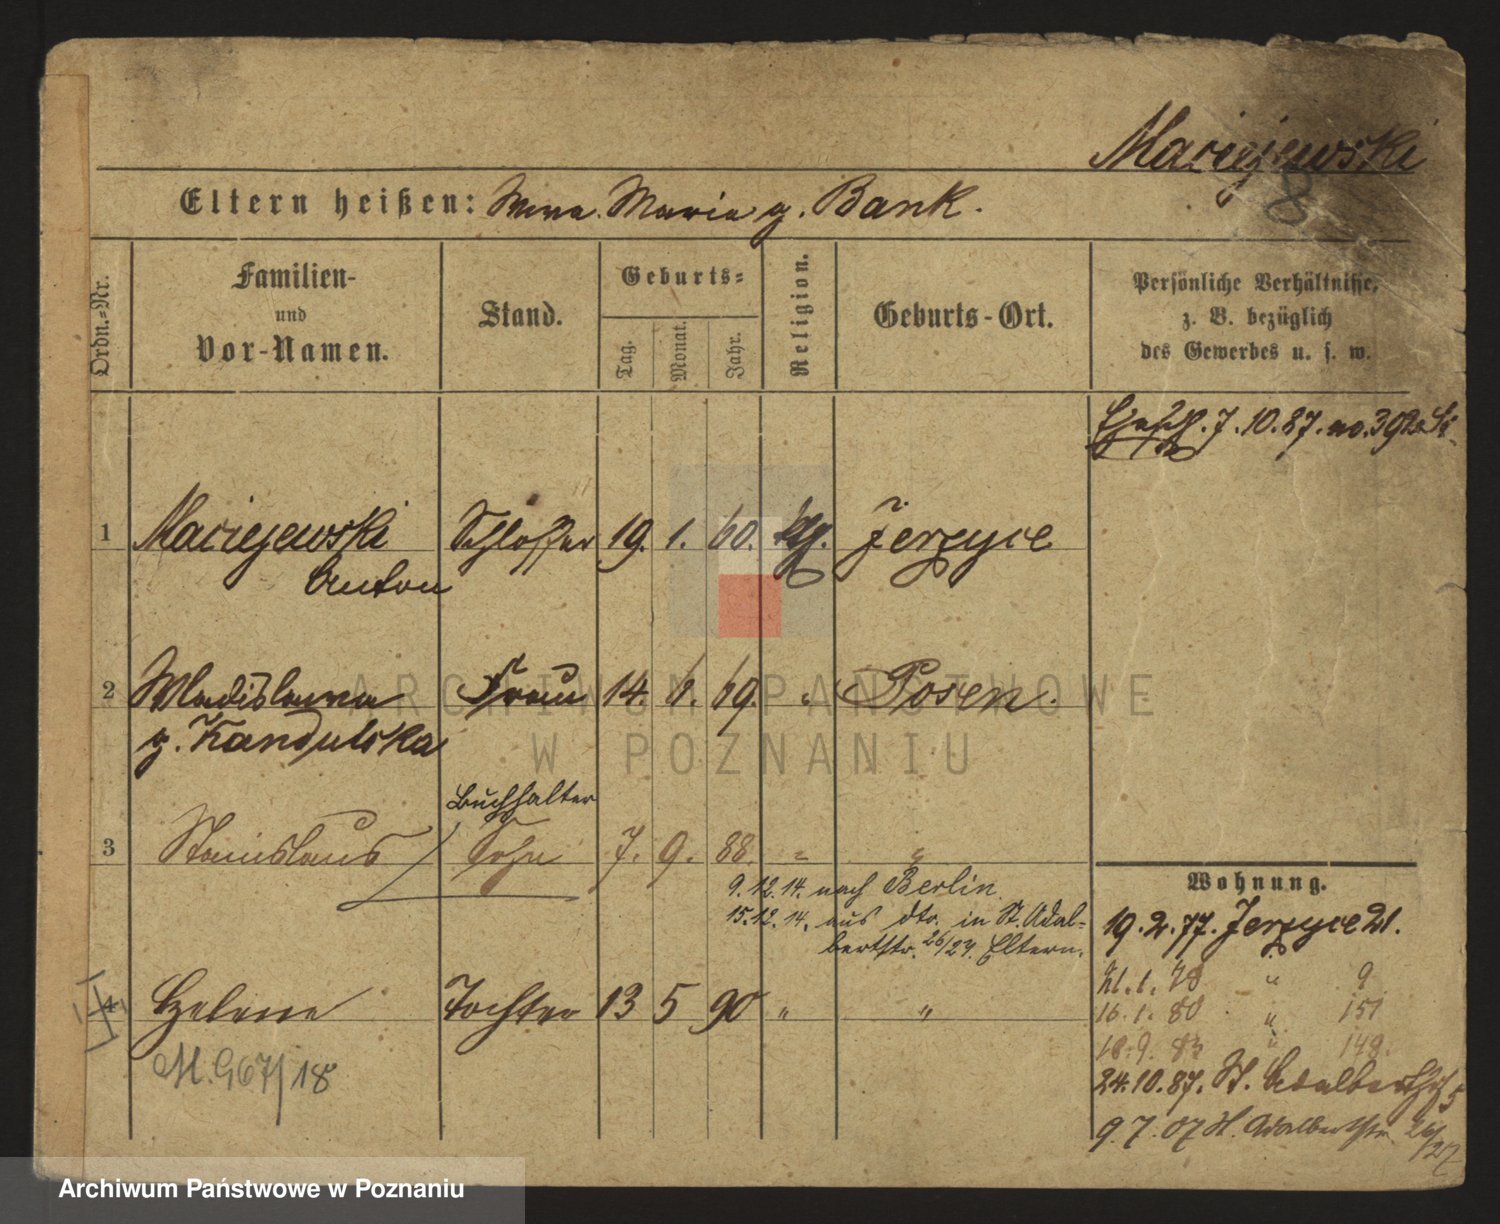 Maciejewski
8
Eltern heißen: Wwe. Marie g. Bank.
Ordn.=Nr.
Familien-
und
Vor-Namen.
Stand.
Geburts=
Tag.
Monat.
Jahr.
Religion.
Geburts-Ort.
Persönliche Verhältnisse,
z. B. bezüglich
des Gewerbes u. s. w.
7.10.87. no. 392
1 Maciejewski Schlosser 19. 1. 60. kth. Jerzyce
Anton
2 Wladislawa Frau 14. 6. 69. " Posen.
g. Kandulska
Buchhalter
3 Stanislaus Sohn 7. 9. 88. " "
9.12.14. nach Berlin
15.12.14. aus dto. in St. Adal=
bertstr. 26/27. Eltern.
4 Helene Tochter 13 5 90 " "
M. 967/18
Wohnung.
19.2.77. Jerzyce 21.
1.1.78 " 9
16.1.80 " 151
18.9.83 " 148.
24.10.87. St. Adalbertstr 5
9.7.07 St. Adalbertstr. 26/27
ARCHIWUM PAŃSTWOWE
W POZNANIU
Archiwum Państwowe w Poznaniu